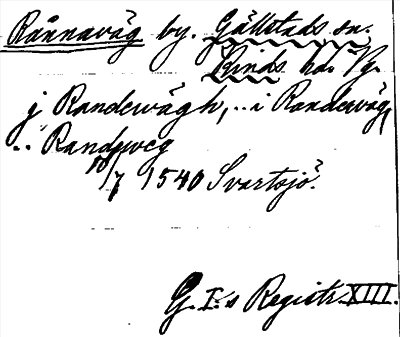 Rånnaväg by. Gällstads sn.
Kinds hd. Vg.
j Randewägh, .. i Randewäg,
.. Randeweg
10/7 1540 Svartsjö.
G. I:s Registr. XIII.